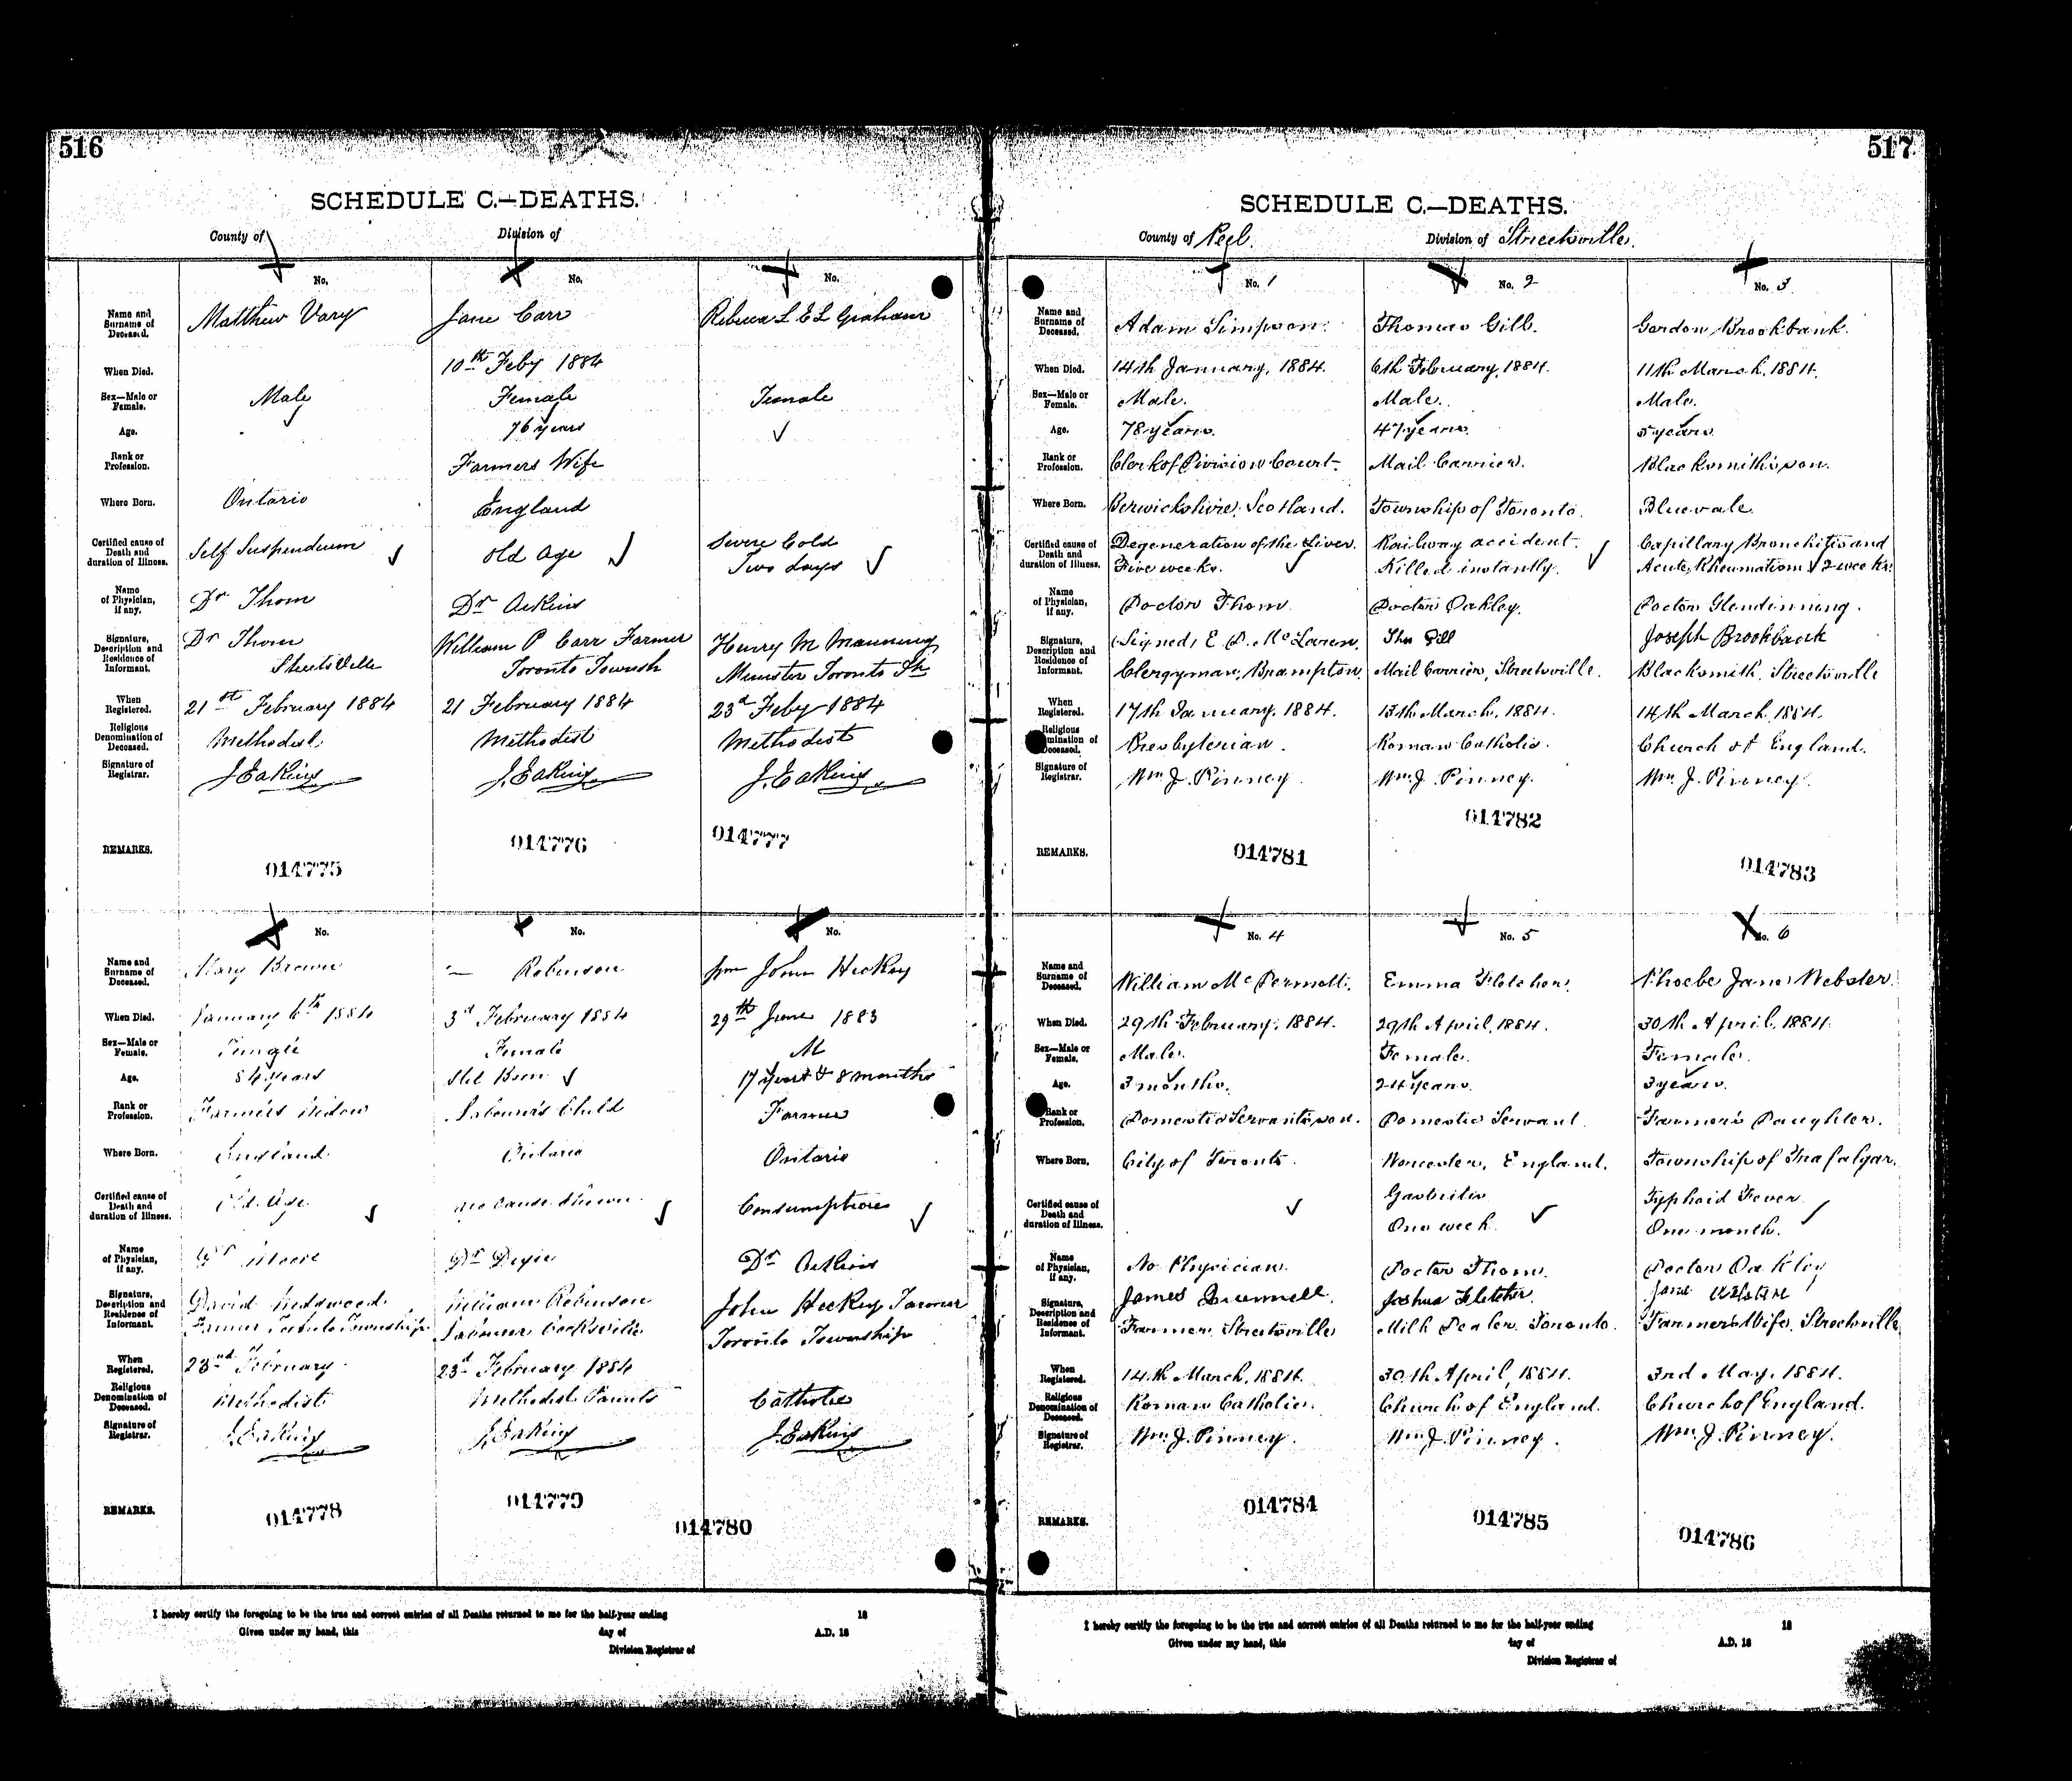 516
SCHEDULE C.—DEATHS.
County of
Division of
No.
No.
No.
Name and Surname of Deceased.
Matthew Vary
Jane Carr
Rebecca L E L Graham
When Died.
10th Feby 1884
Sex—Male or Female.
Male
Female
Female
Age.
76 years
Rank or Profession.
Farmers Wife
Where Born.
Ontario
England
Certified cause of Death and duration of Illness.
Self Suspendium
old age
Severe Cold
Two days
Name of Physician, if any.
Dr Thom
Dr Aikins
Signature, Description and Residence of Informant.
Dr Thom
Streetsville
William P Carr Farmer
Toronto Townsh
Henry M Manning
Minister Toronto
When Registered.
21st February 1884
21 February 1884
23d Feby 1884
Religious Denomination of Deceased.
Methodist
Methodist
Methodist
Signature of Registrar.
J. Eakins
J. Eakins
J. Eakins
REMARKS.
014775
014776
014777
No.
No.
No.
Name and Surname of Deceased.
Mary Brown
— Robinson
John Hickey
When Died.
January 6th 1884
3d February 1884
29th June 1883
Sex—Male or Female.
Female
Female
M
Age.
84 years
Still Born
17 years & 8 months
Rank or Profession.
Farmers Widow
Labourer's Child
Farmer
Where Born.
England
Ontario
Ontario
Certified cause of Death and duration of Illness.
Old Age
no cause shown
Consumption
Name of Physician, if any.
Dr
Dr Dixie
Dr Aikins
Signature, Description and Residence of Informant.
David
Farmer Toronto Township
William Robinson
Labourer Cooksville
John Hickey Farmer
Toronto Township
When Registered.
23nd February
23d February 1884
Religious Denomination of Deceased.
Methodist
Methodist Parents
Catholic
Signature of Registrar.
J. Eakins
J. Eakins
J. Eakins
REMARKS.
014778
014779
014780
I hereby certify the foregoing to be the true and correct entries of all Deaths returned to me for the half-year ending 18
Given under my hand, this day of A.D. 18
Division Registrar of
517
SCHEDULE C.—DEATHS.
County of Peel.
Division of Streetsville.
No. 1
No. 2
No. 3
Name and Surname of Deceased.
Adam Simpson.
Thomas Gill.
Gordon Brookbank.
When Died.
14th January, 1884.
6th February, 1884.
11th March, 1884.
Sex—Male or Female.
Male.
Male.
Male.
Age.
78 years.
47 years.
5 years.
Rank or Profession.
Clerk of Division Court.
Mail Carrier.
Blacksmith's son.
Where Born.
Berwickshire, Scotland.
Township of Toronto.
Bluevale.
Certified cause of Death and duration of Illness.
Degeneration of the Liver.
Five weeks.
Railway accident.
Killed instantly.
Capillary Bronchitis and
Acute Rheumatism 2 weeks.
Name of Physician, if any.
Doctor Thom.
Doctor Oakley.
Doctor Glendinning.
Signature, Description and Residence of Informant.
(Signed) E. D. McLaren.
Clergyman, Brampton.
Gill
Mail Carrier, Streetsville.
Joseph Brookbank
Blacksmith, Streetsville
When Registered.
17th January, 1884.
13th March, 1884.
14th March, 1884.
Religious Denomination of Deceased.
Presbyterian.
Roman Catholic.
Church of England.
Signature of Registrar.
Wm. J. Pinney.
Wm. J. Pinney.
Wm. J. Pinney.
REMARKS.
014781
014782
014783
No. 4
No. 5
No. 6
Name and Surname of Deceased.
William McDermott.
Emma Fletcher.
Phoebe Jane Webster.
When Died.
29th February, 1884.
29th April, 1884.
30th April, 1884.
Sex—Male or Female.
Male.
Female.
Female.
Age.
3 months.
24 years.
3 years.
Rank or Profession.
Domestic Servant's son.
Domestic Servant
Farmer's Daughter.
Where Born,
City of Toronto.
Worcester, England.
Township of Trafalgar.
Certified cause of Death and duration of Illness.
Gastritis
One week.
Typhoid Fever
One month.
Name of Physician, if any.
No Physician.
Doctor Thom.
Doctor Oakley
Signature, Description and Residence of Informant.
James
Farmer, Streetsville
Joshua Fletcher.
Milk Dealer, Toronto.
Jane
Farmer's Wife, Streetsville
When Registered.
14th March, 1884.
30th April, 1884.
3rd May, 1884.
Religious Denomination of Deceased.
Roman Catholic.
Church of England.
Church of England.
Signature of Registrar.
Wm. J. Pinney.
Wm. J. Pinney.
Wm. J. Pinney.
REMARKS.
014784
014785
014786
I hereby certify the foregoing to be the true and correct entries of all Deaths returned to me for the half-year ending 18
Given under my hand, this day of A.D. 18
Division Registrar of